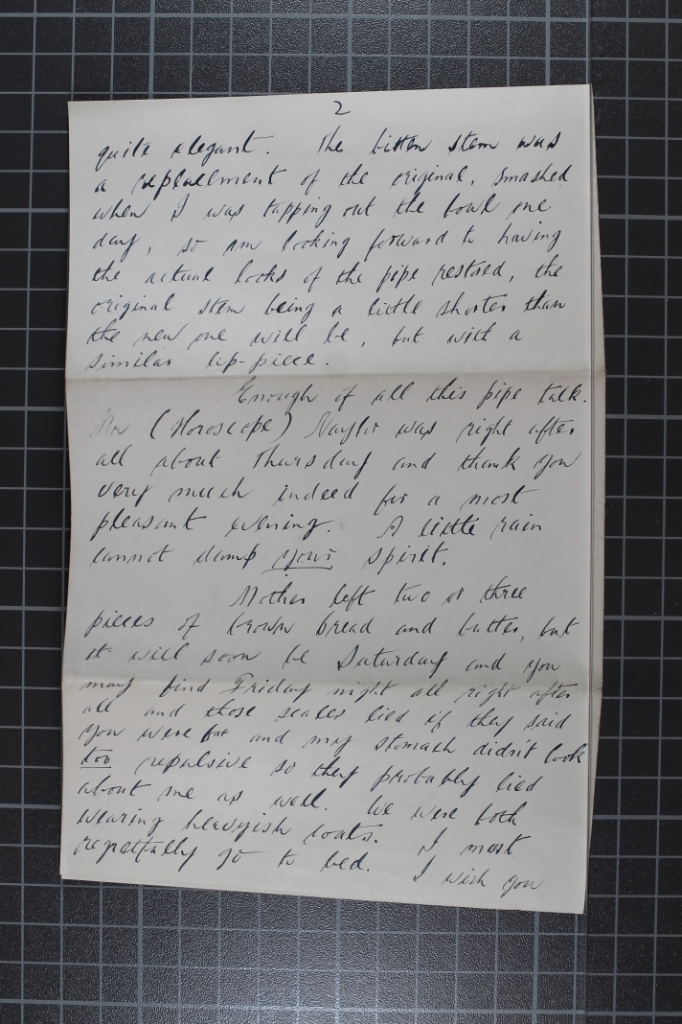 2
quite elegant. The bitten stem was
a replacement of the original, smashed
when I was tapping out the bowl one
day, so am looking forward to having
the actual looks of the pipe restored, the
original stem being a little shorter than
the new one will be, but with a
similar lip-piece.
Enough of all this pipe talk.
Mr (Horoscope) Naylor was right after
all about Thursday and thank you
very much indeed for a most
pleasant evening. A little rain
cannot damp your spirit.
Mother left two or three
pieces of brown bread and butter, but
it will soon be Saturday and you
may find Friday night all right after
all and those scales lied if they said
you were fat and my stomach didn't look
too repulsive so they probably lied
about me as well. We were both
wearing heavyish coats. I most
regretfully go to bed. I wish you